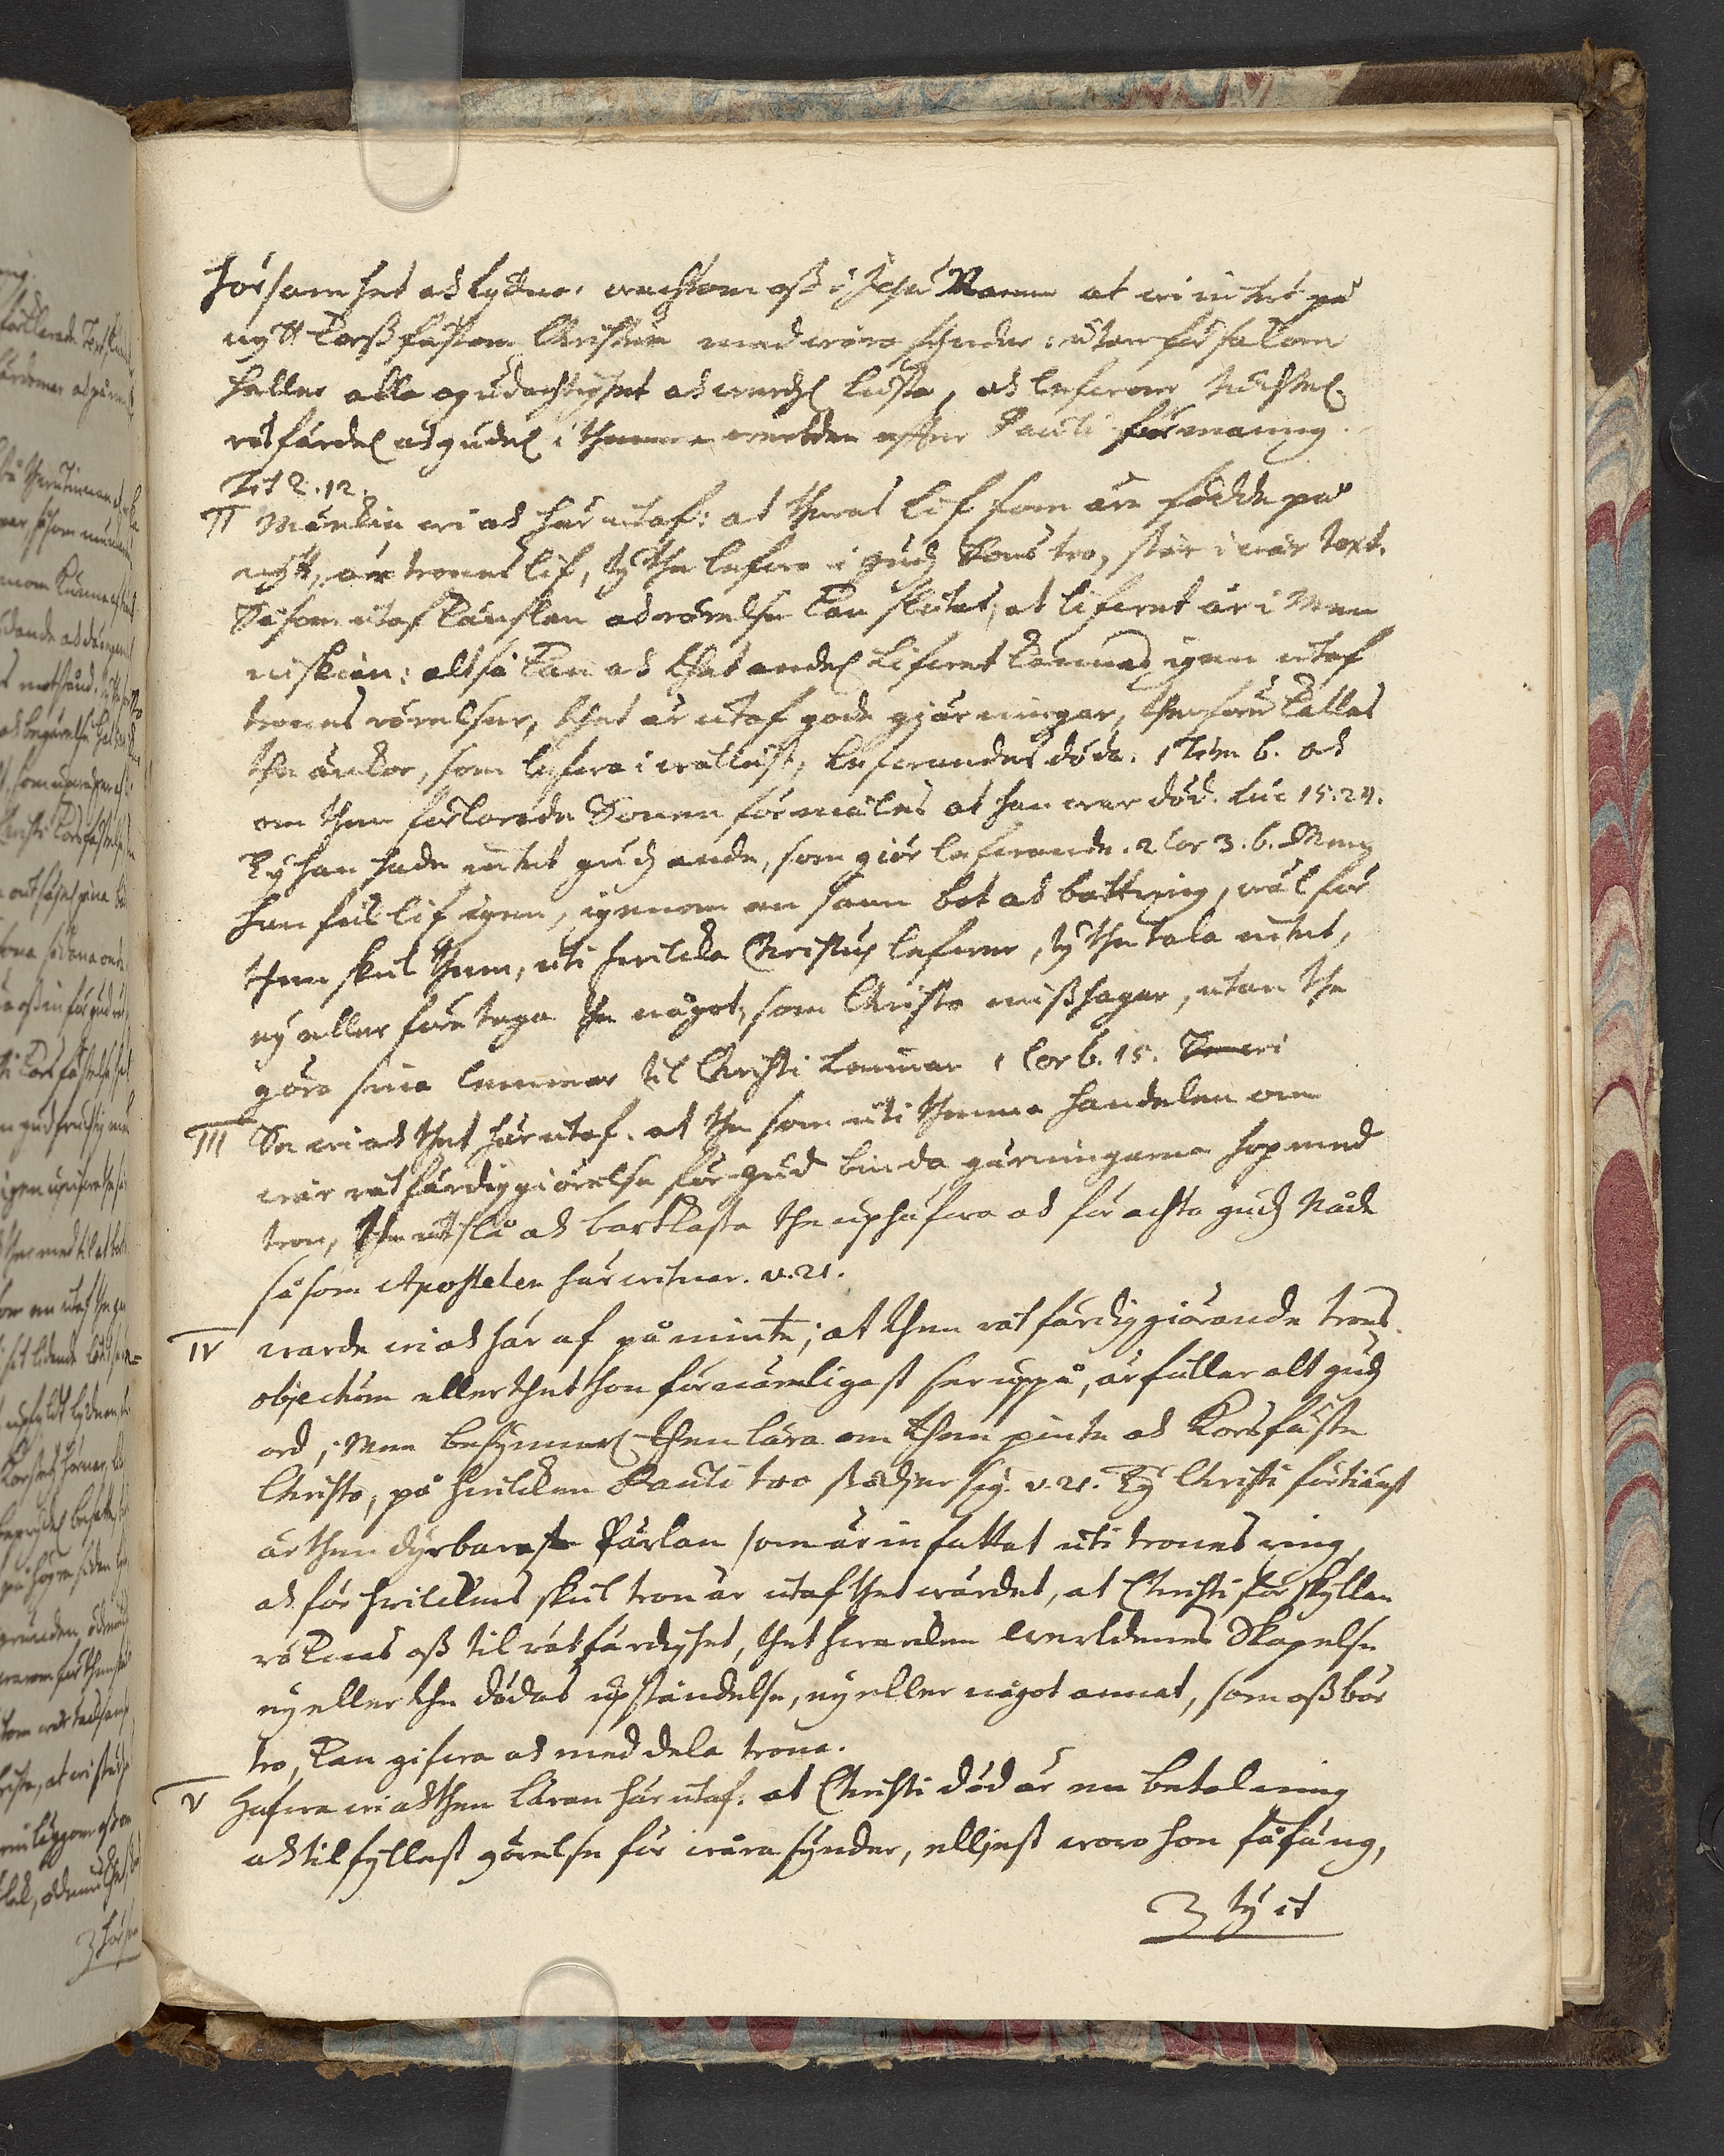 hörsamhet och lydno. wachtom oss i Jesu Namn at wi intet på
nytt korssfästom Christum med wåra synder: utan försakom
heller alla ogudachtighet och werldzl lusta, och lefwom tuchtel.
rätfärdel och gudel i thenna werlden effter Pauli förmaning.
Tit 2.12.
II Märckia wi och här utaf: at theras lif som äro födde på
nytt, är trones lif, ty the lefwa i Gudz Sons tro, står i wår text.
Såsom utaf känslan och rörelse kan slutas, at lifwet är i Men
niskian: altså kan och thet andel lifwet kännas igen utaf
trones rörelser, thet är utaf goda gjärningar, therföre kallas
the änckor, som lefwa i wällust, lefwandes döda. 1 Tim 6. och
om then förlorade Sonen förmäles at han war död. Luc 15.24.
Ty han hade intet Gudz anda, som giör lefwande. 2 Cor 3.6. Men
han fick lif igen, igenom en sann bot och bättring, wäl för
then skul them, uti hwilcka Christus lefwer, ty the tala intet,
ey eller företaga the något, som Christo misshagar, utan the
göra sina lemmar til Christi lemmar 1 Cor 6.15. Se wi
III Se wi och thet här utaf. at the som uti thenna handelen om
wår rätfärdiggiörelse för Gud binda gärningarna hop med
tron, the utslå och bortkasta the uphäfwa och förachta Gudz Nåde
såsom Apostelen här witnar. v.21.
IV warde wi och här af påminte; at then rätfärdiggiörande trons
objectum eller thet hon förnämligast ser uppå, är fuller alt Gudz
ord; Men besynnerl then lära om then pinte och korsfäste
Christo, på hwilcken Pauli tro stödjer sig. v.21. Ty Christi förtiänst
är then dyrbaraste Pärlan som är infattat uti trones ring,
och för hwilckens skul tron är utaf thet wärdet, at Christi förskyllan
räknas oss til rätfärdighet, thet hwarcken werldenes Skapelse
ey eller the dödas upståndelse, ey eller något annat, som oss bör
tro, kan gifwa och meddela trona.
V Hafwa wi och then läran här utaf. at Christi död är en betalning
och tilfyllest görelse för wåra synder, elliest woro hon fåfäng,
ty it